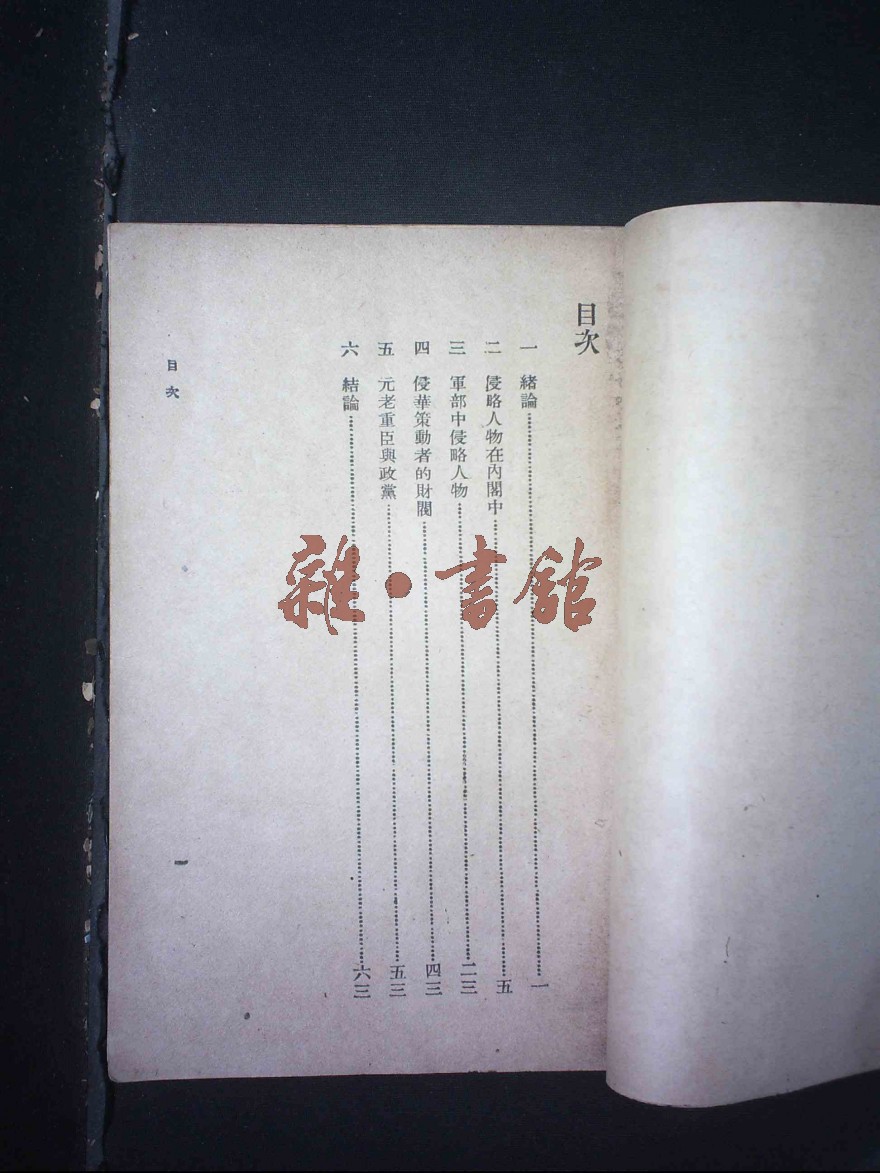 目次
一 緒論 一
二 侵略人物在內閣中 五
三 軍部中侵略人物 二三
四 侵華策動者的財閥 四三
五 元老重臣與政黨 五三
六 結論 六三
目次
一
雜·書館